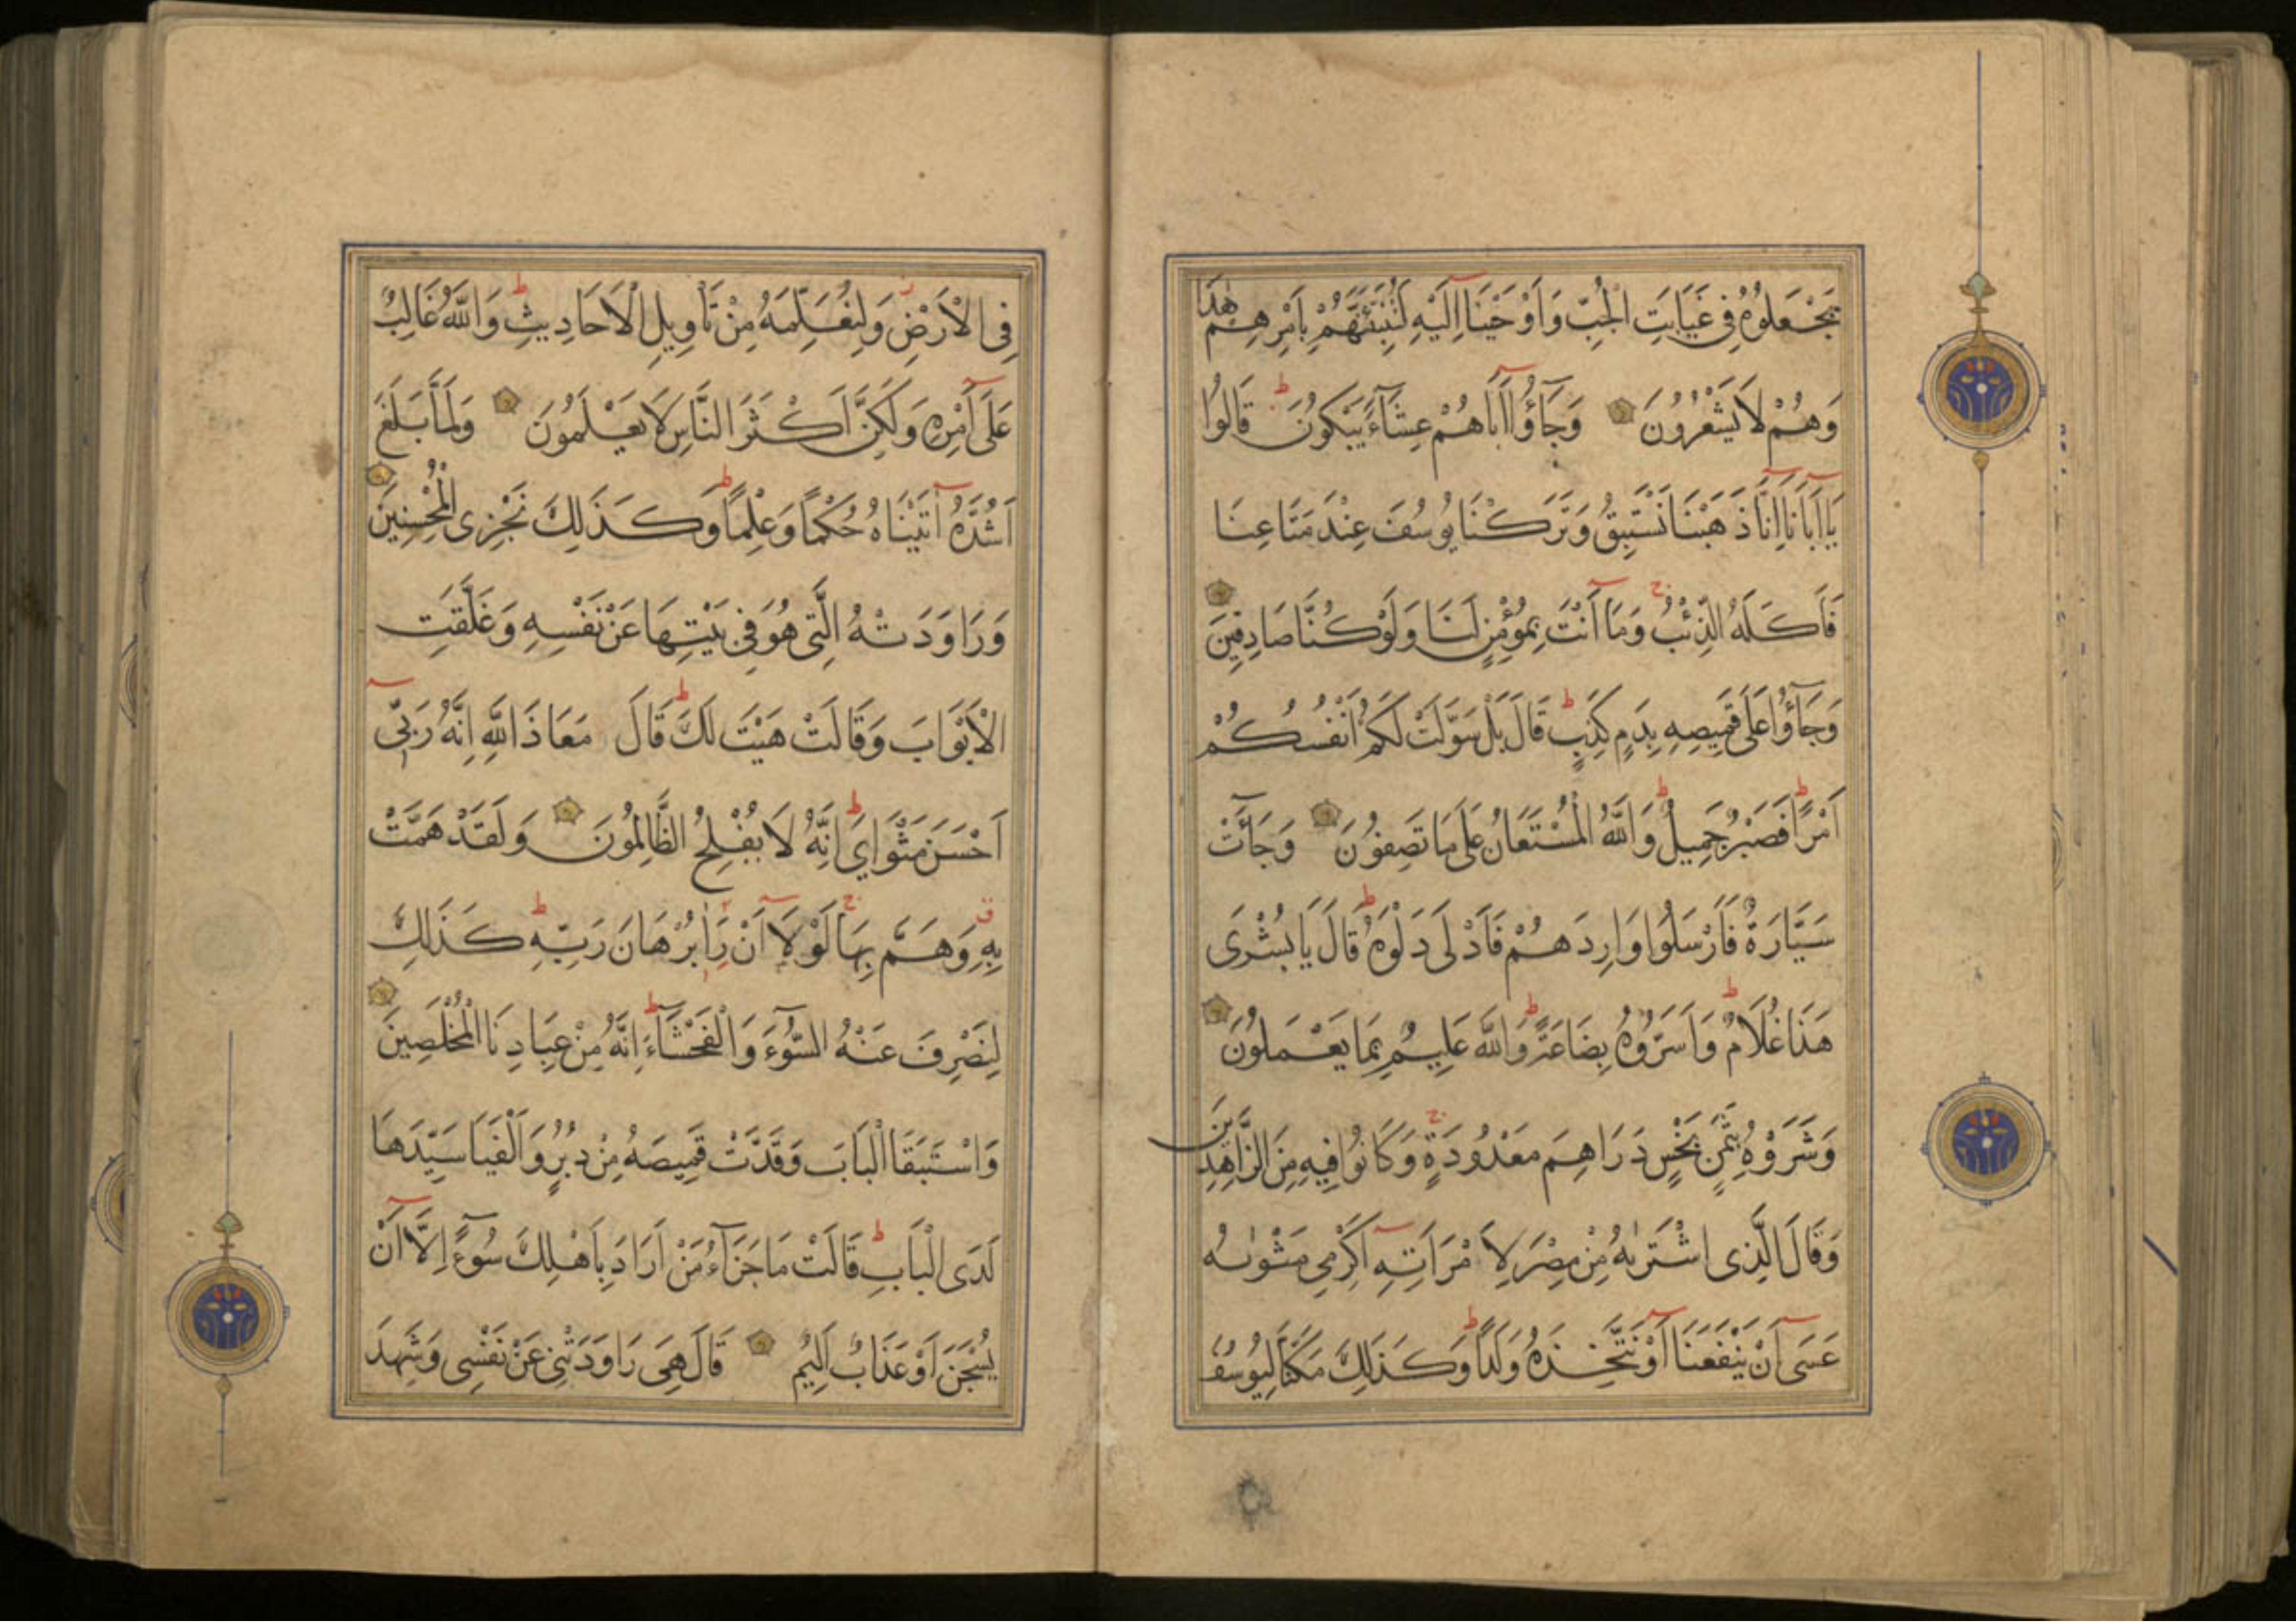 يَجْعَلُوهُ فِى غَيَابَتِ الْجُبِّ وَاَوْحَيْنَا اِلَيْهِ لَتُنَبِّئَنَّهُمْ بِاَمْرِهِمْ هٰذَا
وَهُمْ لَا يَشْعُرُونَ وَجَآؤُا اَبَاهُمْ عِشَآءً يَبْكُونَ قَالُوا
يَا اَبَانَا اِنَّا ذَهَبْنَا نَسْتَبِقُ وَتَرَكْنَا يُوسُفَ عِنْدَ مَتَاعِنَا
فَاَكَلَهُ الذِّئْبُ وَمَا اَنْتَ بِمُؤْمِنٍ لَنَا وَلَوْ كُنَّا صَادِقِينَ
وَجَآؤُا عَلَى قَمِيصِهِ بِدَمٍ كَذِبٍ قَالَ بَلْ سَوَّلَتْ لَكُمْ اَنْفُسُكُمْ
اَمْرًا فَصَبْرٌ جَمِيلٌ وَاللّٰهُ الْمُسْتَعَانُ عَلَى مَا تَصِفُونَ وَجَآءَتْ
سَيَّارَةٌ فَاَرْسَلُوا وَارِدَهُمْ فَاَدْلَى دَلْوَهُ قَالَ يَا بُشْرَى
هَذَا غُلَامٌ وَاَسَرُّوهُ بِضَاعَةً وَاللّٰهُ عَلِيمٌ بِمَا يَعْمَلُونَ
وَشَرَوْهُ بِثَمَنٍ بَخْسٍ دَرَاهِمَ مَعْدُودَةٍ وَكَانُوا فِيهِ مِنَ الزَّاهِدِينَ
وَقَالَ الَّذِى اشْتَرٰيهُ مِنْ مِصْرَ لِامْرَاَتِهِ اَكْرِمِى مَثْوٰيهُ
عَسَى اَنْ يَنْفَعَنَا اَوْ نَتَّخِذَهُ وَلَدًا وَكَذَلِكَ مَكَّنَّا لِيُوسُفَ
فِى الْاَرْضِ وَلِنُعَلِّمَهُ مِنْ تَاْوِيلِ الْاَحَادِيثِ وَاللّٰهُ غَالِبٌ
عَلَى اَمْرِهِ وَلَكِنَّ اَكْثَرَ النَّاسِ لَا يَعْلَمُونَ وَلَمَّا بَلَغَ
اَشُدَّهُ اٰتَيْنَاهُ حُكْمًا وَعِلْمًا وَكَذَلِكَ نَجْزِى الْمُحْسِنِينَ
وَرَاوَدَتْهُ الَّتِى هُوَ فِى بَيْتِهَا عَنْ نَفْسِهِ وَغَلَّقَتِ
الْاَبْوَابَ وَقَالَتْ هَيْتَ لَكَ قَالَ مَعَاذَ اللّٰهِ اِنَّهُ رَبِّى
اَحْسَنَ مَثْوَايَ اِنَّهُ لَا يُفْلِحُ الظَّالِمُونَ وَلَقَدْ هَمَّتْ
بِهِ وَهَمَّ بِهَا لَوْلَا اَنْ رَاٰ بُرْهَانَ رَبِّهِ كَذَلِكَ
لِنَصْرِفَ عَنْهُ السُّوٓءَ وَالْفَحْشَآءَ اِنَّهُ مِنْ عِبَادِنَا الْمُخْلَصِينَ
وَاسْتَبَقَا الْبَابَ وَقَدَّتْ قَمِيصَهُ مِنْ دُبُرٍ وَاَلْفَيَا سَيِّدَهَا
لَدَى الْبَابِ قَالَتْ مَا جَزَآءُ مَنْ اَرَادَ بِاَهْلِكَ سُوٓءًا اِلَّا اَنْ
يُسْجَنَ اَوْ عَذَابٌ اَلِيمٌ قَالَ هِيَ رَاوَدَتْنِى عَنْ نَفْسِى وَشَهِدَ